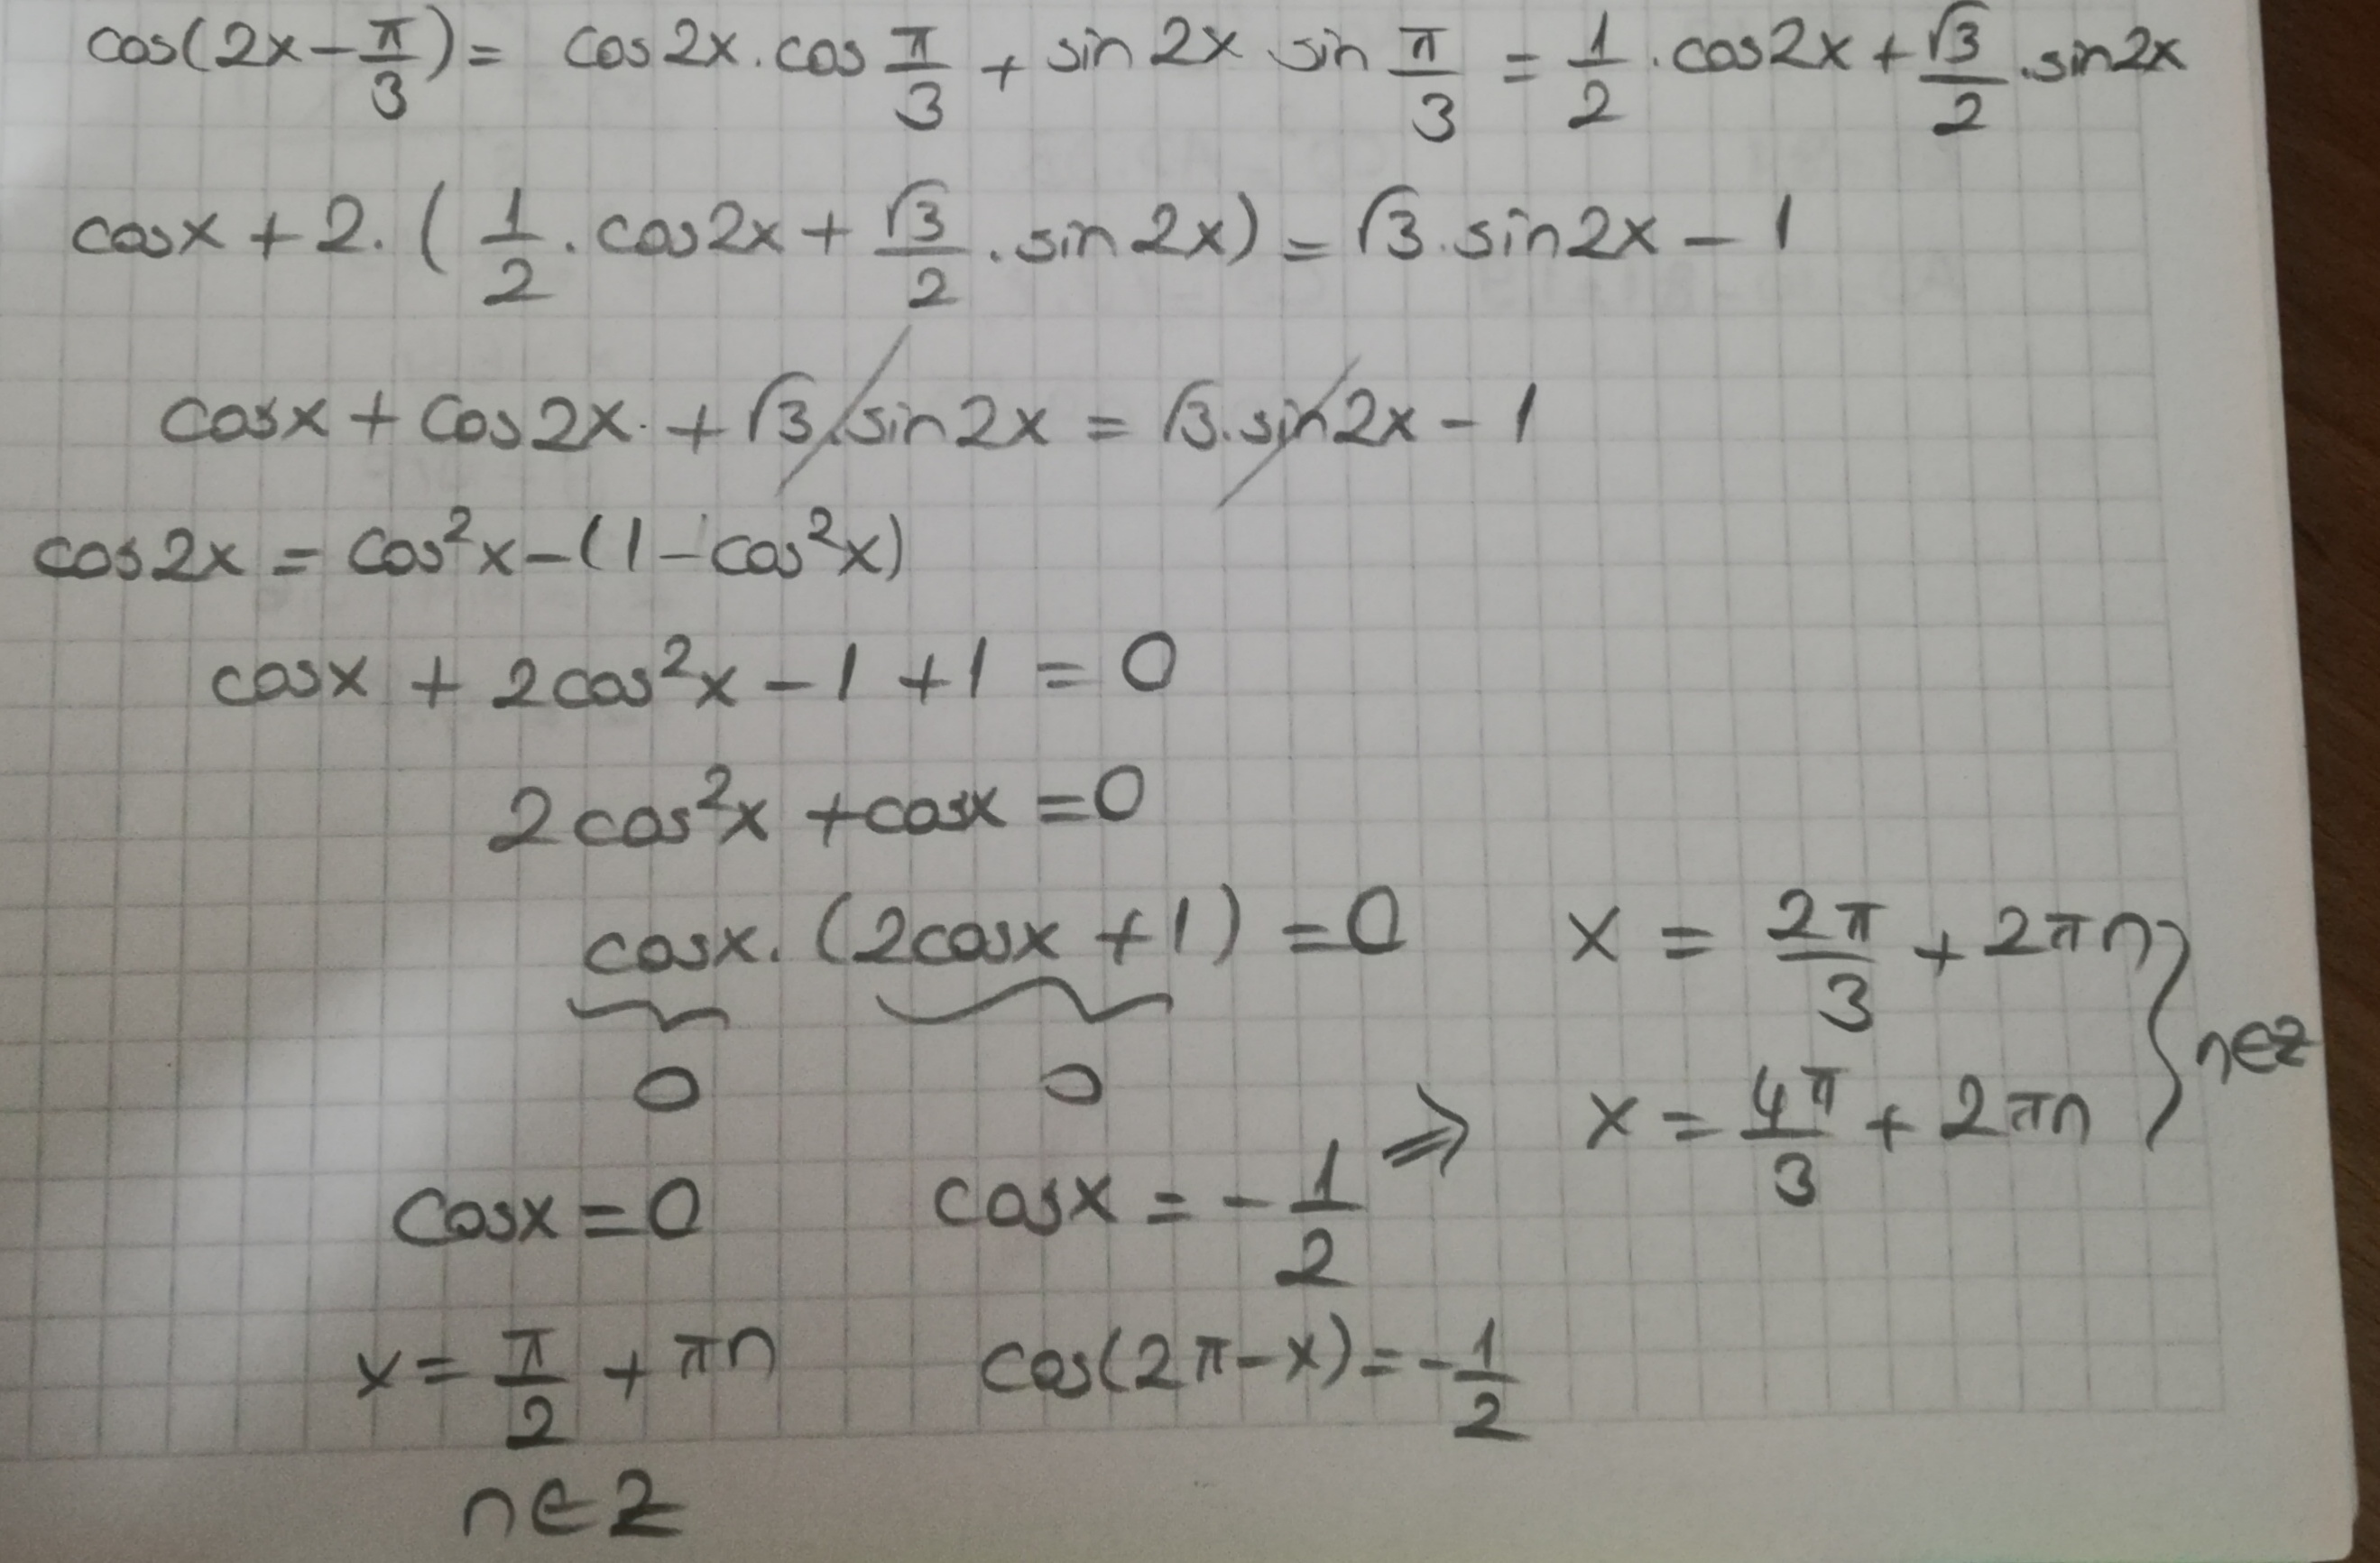 cos(2x - π/3) = cos2x . cos π/3 + sin 2x sin π/3 = 1/2 . cos2x + √3/2 . sin2x
cosx + 2 . (1/2 . cos2x + √3/2 . sin 2x) = √3 . sin2x - 1
cosx + cos2x . + √3 . sin2x = √3 . sin2x - 1
cos2x = cos²x - (1 - cos²x)
cosx + 2cos²x - 1 + 1 = 0
2cos²x + cosx = 0
cosx . (2cosx + 1) = 0
0 0
cosx = 0
cosx = - 1/2 ⇒
x = 2π/3 + 2πn
x = 4π/3 + 2πn
n∈Z
x = π/2 + πn
cos(2π - x) = - 1/2
n∈Z